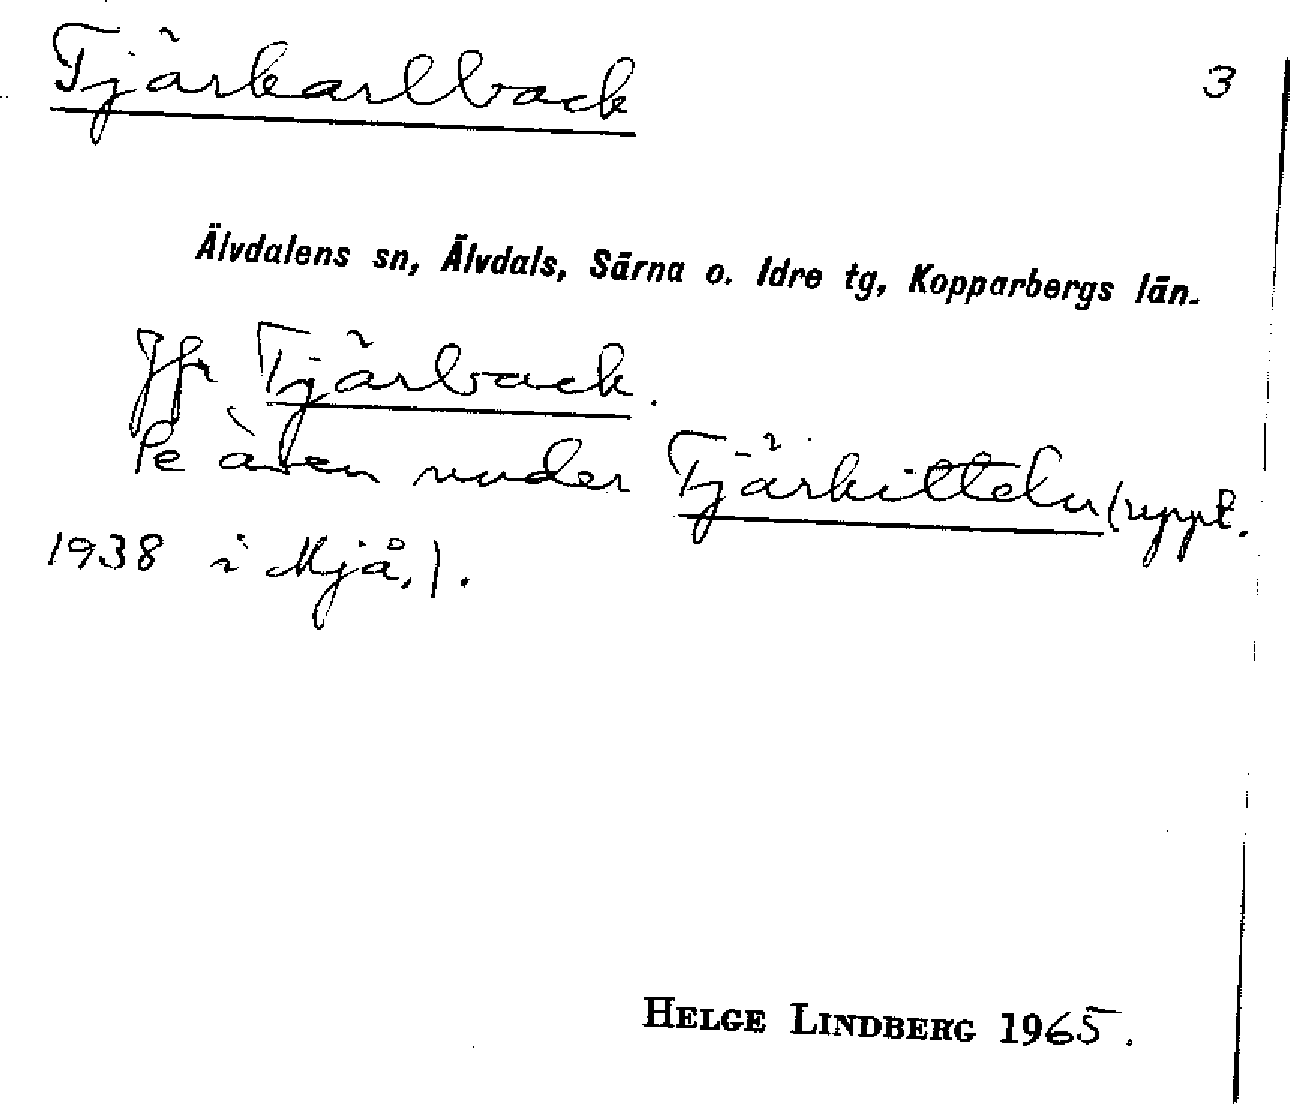 Tjärkarlback
3
Älvdalens sn, Älvdals, Särna o. Idre tg, Kopparbergs län.
Jfr Tjärback.
Se även under Tjärkitteln (uppt.
1938 i Mjå.).
HELGE LINDBERG 1965.